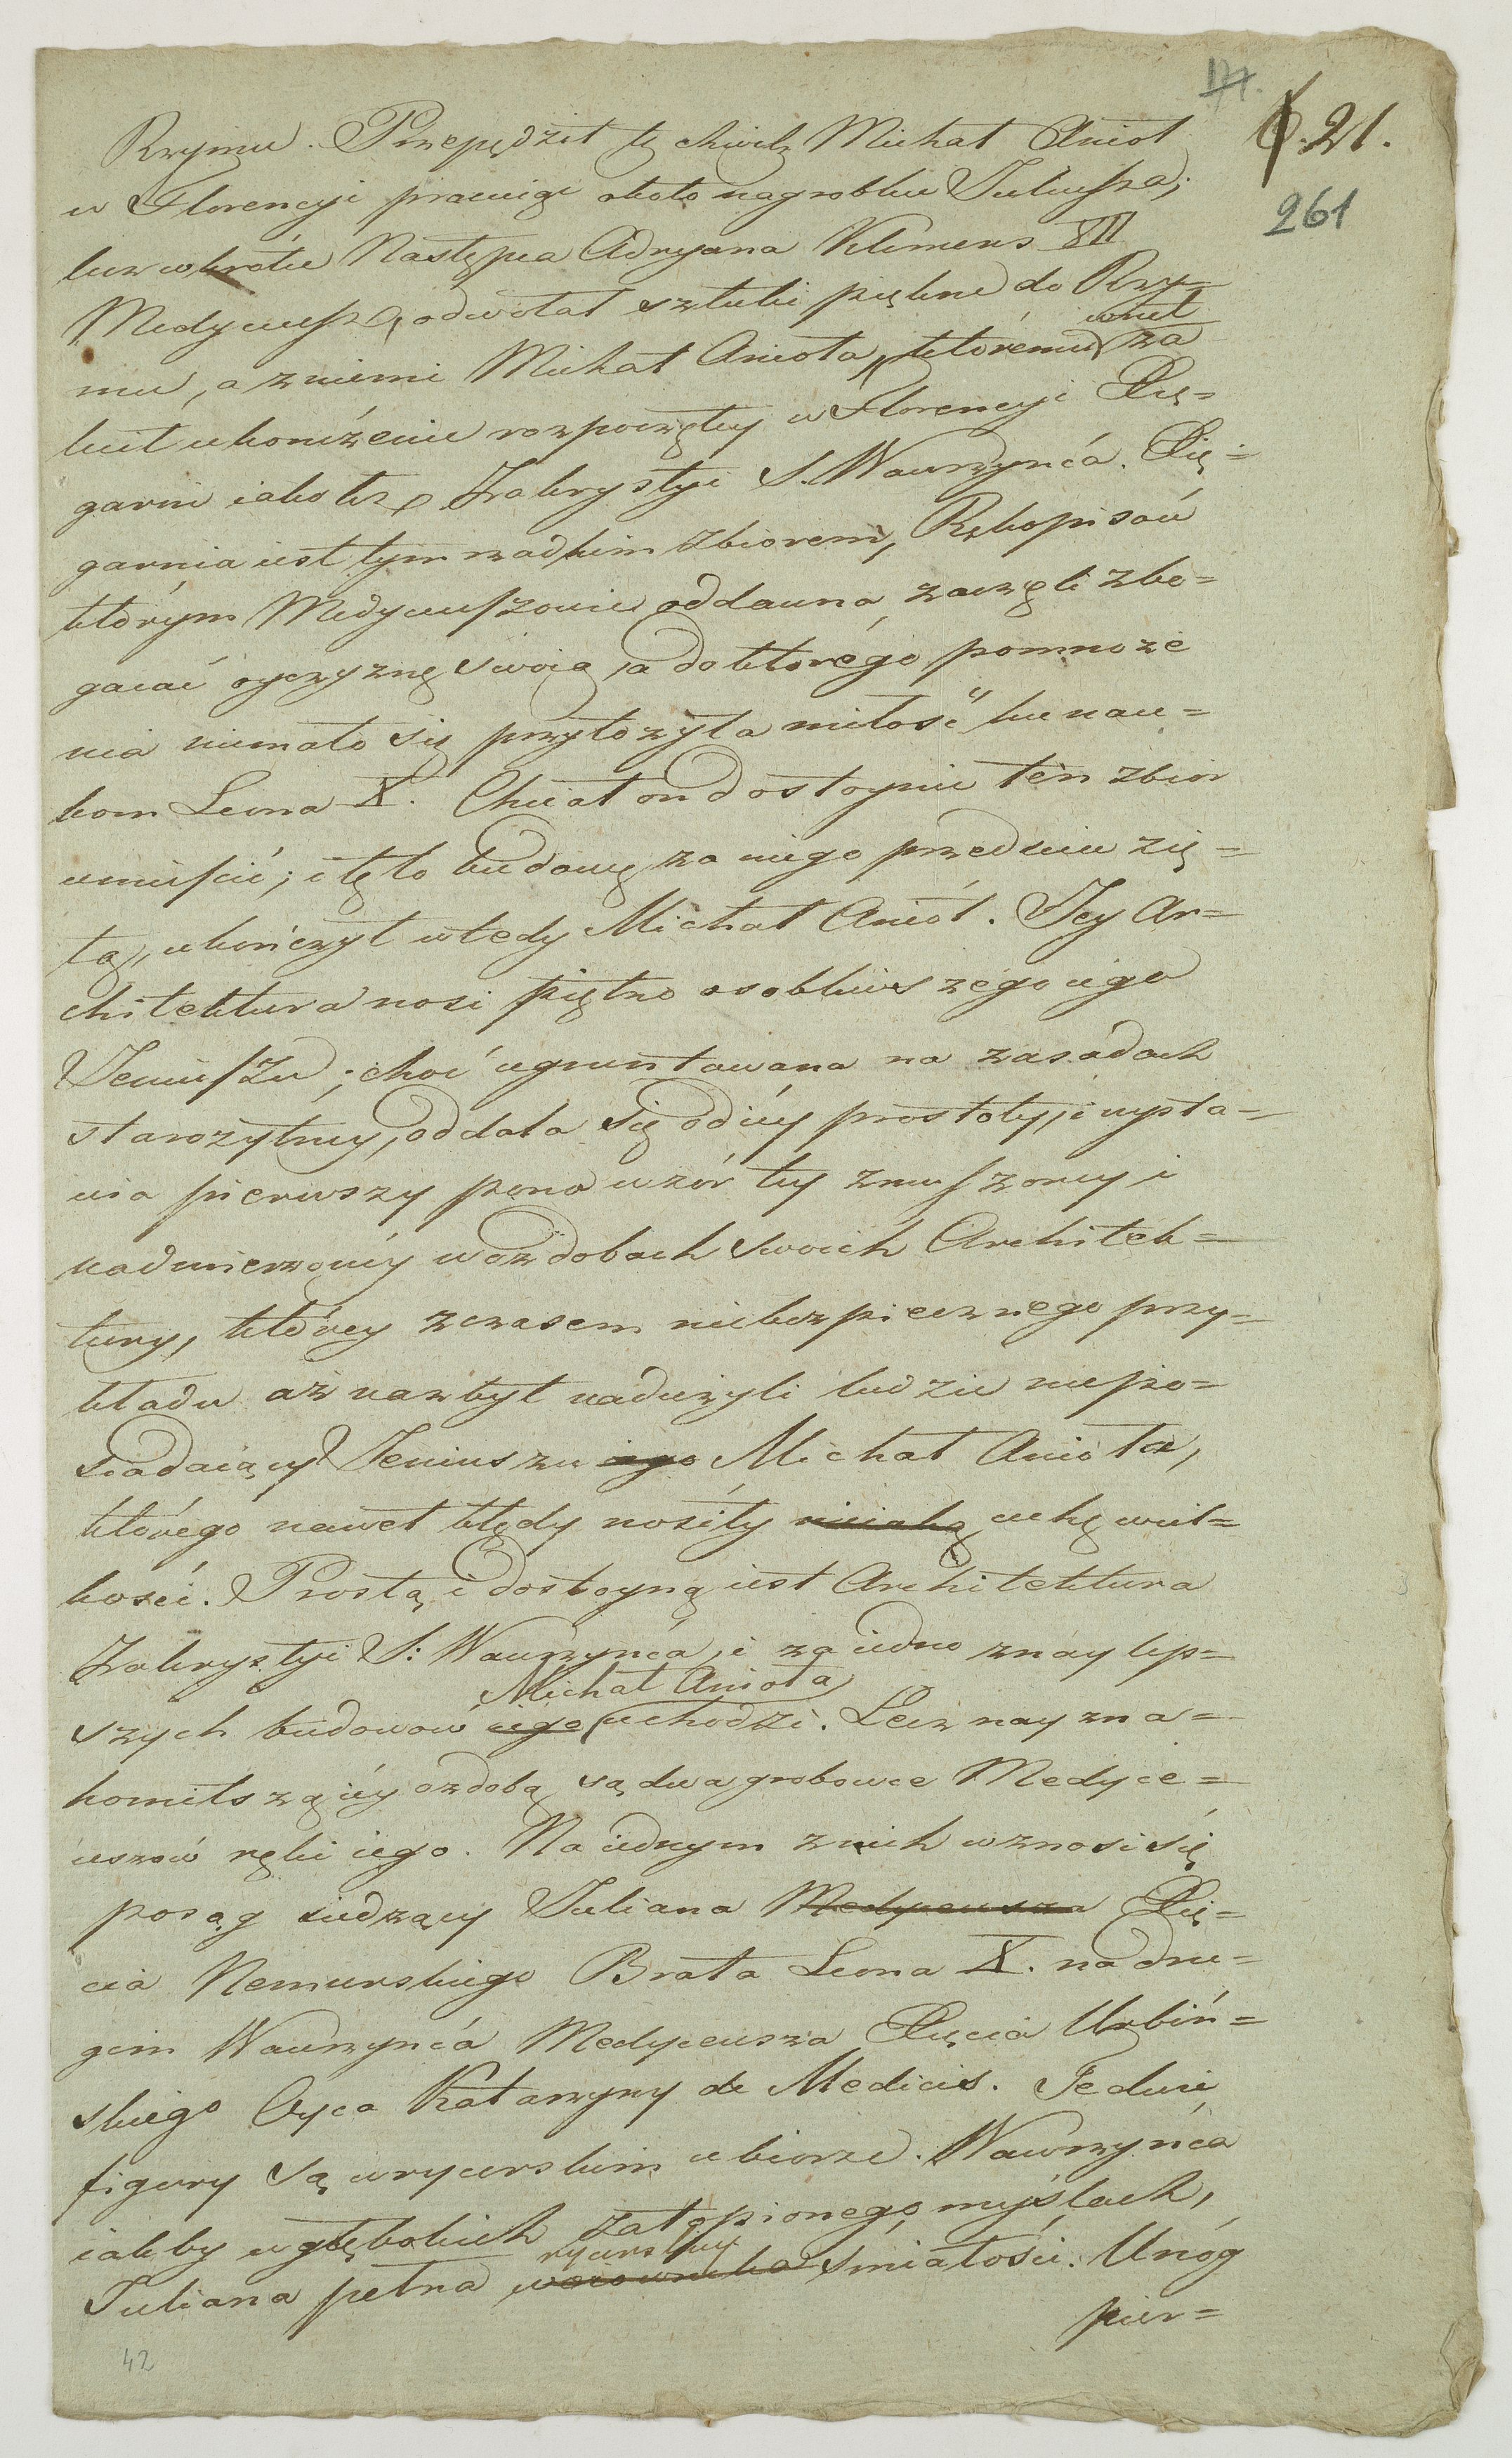 171.
21.
261
Rzymu. Przepędził tę chwilę Michał Anioł
w Florencyi pracuiąc około nagrobku Juliusza;
lecz wkrótce Następca Adryana Klemens VII
Medyceusz, odwołał sztuki piękne do Rzy=
mu, a z niemi Michał Anioła, któremu wnet za
lecił ukończenie rozpoczętey w Florencyi Xię=
garni iako też Zakrystyi S. Wawrzyńca. Xię=
garnia iest tym rzadkim zbiorem, Rękopisów
którym Medyceuszowie oddawna zaczęli zbo=
gacać oyczyznę swoią, a do którego pomnoże
nia niemało się przyłożyła miłość ku nau=
kom Leona X. Chciał on dostoynie ten zbior
umieścić; i tę to budowę za niego przedsiewzię=
tą, ukończył wtedy Michał Anioł. Jey Ar=
chitektura nosi piętno osobliwszego iego
Jeniuszu; choć ugruntowana na zasadach
starożytney, oddala się od iey prostoty, i wysta=
wia pierwszy pono wzór tey zmuszoney i
nadmierzoney w ozdobach swoich Architek=
tury, którey z czasem niebezpiecznego przy=
kładu aż nazbyt nadużyli ludzie niepo=
siadaiący Jeniuszu iego Michał Anioła,
którego nawet błędy nosiły niciaką cechę wiel=
kości. Prostą i dostoyną iest Architektura
Zakrystyi S: Wawrzyńca, i za iedno z nay lep=
szych budowów iego Michał Anioła uchodzi. Lecz nay zna=
komitszą iey ozdobą są dwa grobowce Medyce=
uszów ręki iego. Na iednym z nich wznosi się
posąg siedzący Juliana Medyceusza Xię=
cia Nemurskiego Brata Leona X. na dru=
gim Wawrzyńca Medyceusza Xięcia Urbiń=
skiego Oyca Katarzyny de Medicis. Te dwie
figury są w rycerskim ubiorze. Wawrzyńca
iakby w głębokich zatopionego myślach,
Juliana pełna rycerskiey śmiałości. U nóg
pier=
42